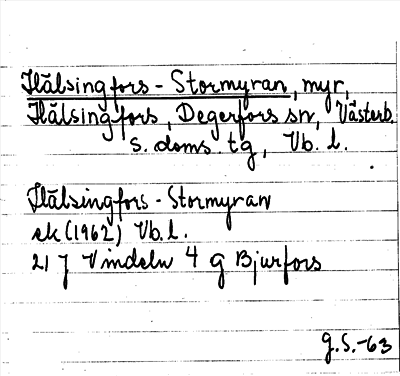 Hälsingfors - Stormyran, myr,
Hälsingfors, Degerfors sn, Västerb.
s. doms. tg, Vb. l.
Hälsingfors - Stormyran
ek (1962) Vb. l.
21 J Vindeln 4 g Bjurfors
G.S.-63